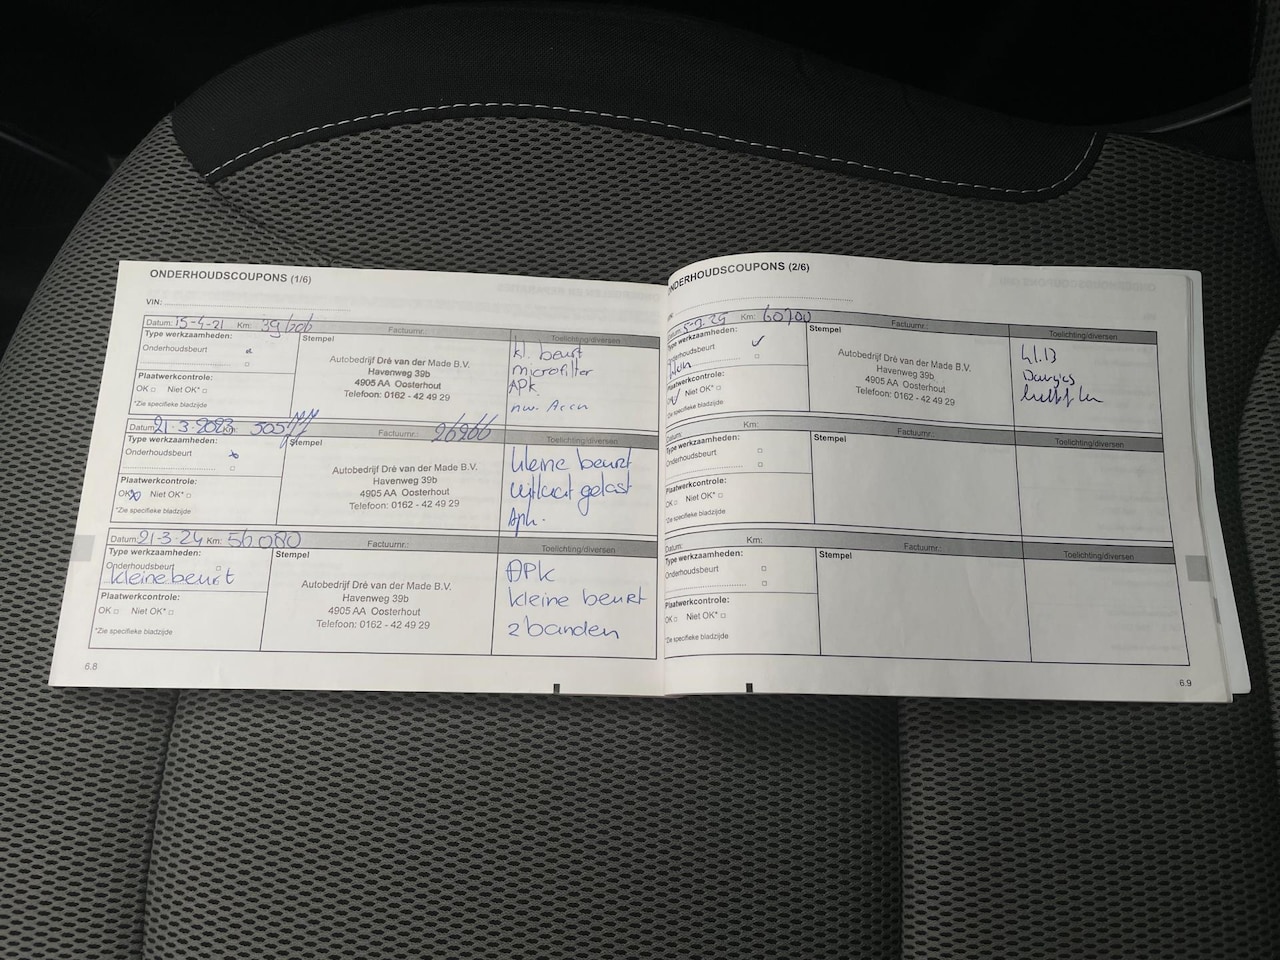 ONDERHOUDSCOUPONS (1/6)
VIN:
Datum: 15-4-21 Km: 39606 Factuurnr.:
Type werkzaamheden:
Onderhoudsbeurt
Plaatwerkcontrole:
OK □ Niet OK* □
*Zie specifieke bladzijde
Stempel
Autobedrijf Dré van der Made B.V.
Havenweg 39b
4905 AA Oosterhout
Telefoon: 0162 - 42 49 29
Toelichting/diversen
kl. beurt
microfilter
APK
nw. Accu
Datum: 21-3-2023 Km: 50577 Factuurnr.: 26266
Type werkzaamheden:
Onderhoudsbeurt
Plaatwerkcontrole:
OK Niet OK* □
*Zie specifieke bladzijde
Stempel
Autobedrijf Dré van der Made B.V.
Havenweg 39b
4905 AA Oosterhout
Telefoon: 0162 - 42 49 29
Toelichting/diversen
kleine beurt
uitlaat gelast
Apk.
Datum: 21-3-24 Km: 56080 Factuurnr.:
Type werkzaamheden:
Onderhoudsbeurt □
kleine beurt
Plaatwerkcontrole:
OK □ Niet OK* □
*Zie specifieke bladzijde
Stempel
Autobedrijf Dré van der Made B.V.
Havenweg 39b
4905 AA Oosterhout
Telefoon: 0162 - 42 49 29
Toelichting/diversen
APK
kleine beurt
2 banden
6.8
ONDERHOUDSCOUPONS (2/6)
Km: 60700 Factuurnr.:
Type werkzaamheden:
Onderhoudsbeurt
klein
Plaatwerkcontrole:
Niet OK* □
*Zie specifieke bladzijde
Stempel
Autobedrijf Dré van der Made B.V.
Havenweg 39b
4905 AA Oosterhout
Telefoon: 0162 - 42 49 29
Toelichting/diversen
Datum: Km: Factuurnr.:
Type werkzaamheden:
Onderhoudsbeurt □
Plaatwerkcontrole:
OK □ Niet OK* □
*Zie specifieke bladzijde
Stempel
Toelichting/diversen
Datum: Km: Factuurnr.:
Type werkzaamheden:
Onderhoudsbeurt □
Plaatwerkcontrole:
OK □ Niet OK* □
*Zie specifieke bladzijde
Stempel
Toelichting/diversen
6.9